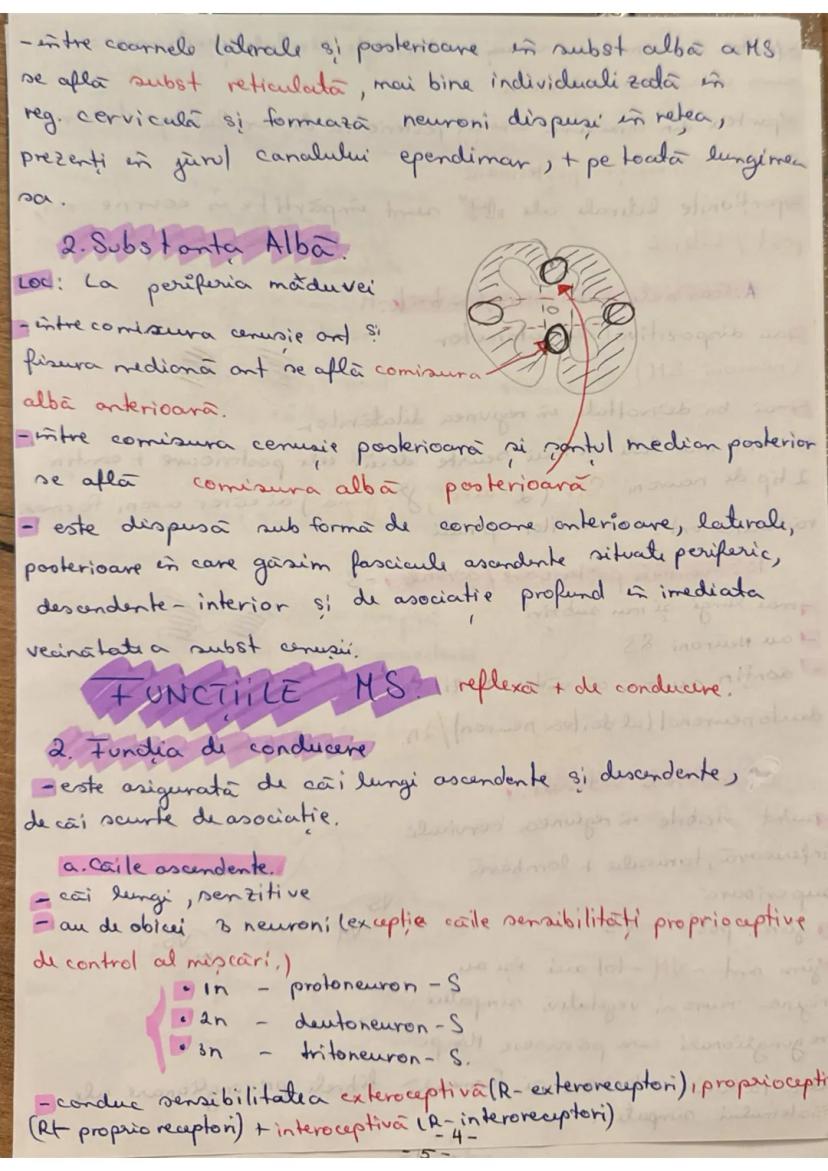 -între coarnele laterale și posterioare în subst albă a MS
se află subst reticulată, mai bine individualizată în
reg. cervicală și formează neuroni dispuși în rețea,
prezenți în jurul canalului ependimar, + pe toată lungimea
sa.
2. Substanța Albă.
LOC: La periferia măduvei
-între comisura cenușie ant și
fisura mediană ant se află comisura
albă anterioară.
-între comisura cenușie posterioară și șanțul median posterior
se află comisura albă posterioară
- este dispusă sub formă de cordoane anterioare, laterale,
posterioare în care găsim fascicule ascendente situate periferic,
descendente - interior și de asociație profund în imediata
vecinătate a subst cenușii.
FUNCȚIILE MS: reflexă + de conducere.
2. Funcția de conducere
-este asigurată de căi lungi ascendente și descendente,
de căi scurte de asociație.
a. Căile ascendente.
- căi lungi, senzitive
- au de obicei 3 neuroni (excepție căile sensibilități proprioceptive
de control al mișcări.)
• 1n - protoneuron - S
• 2n - deutoneuron - S
• 3n - tritoneuron - S.
-conduc sensibilitatea exteroceptivă (R- exteroreceptori), propriocepti
(R+ proprioreceptori) + interoceptivă (R- interoreceptori)
- 4 -
- 5 -